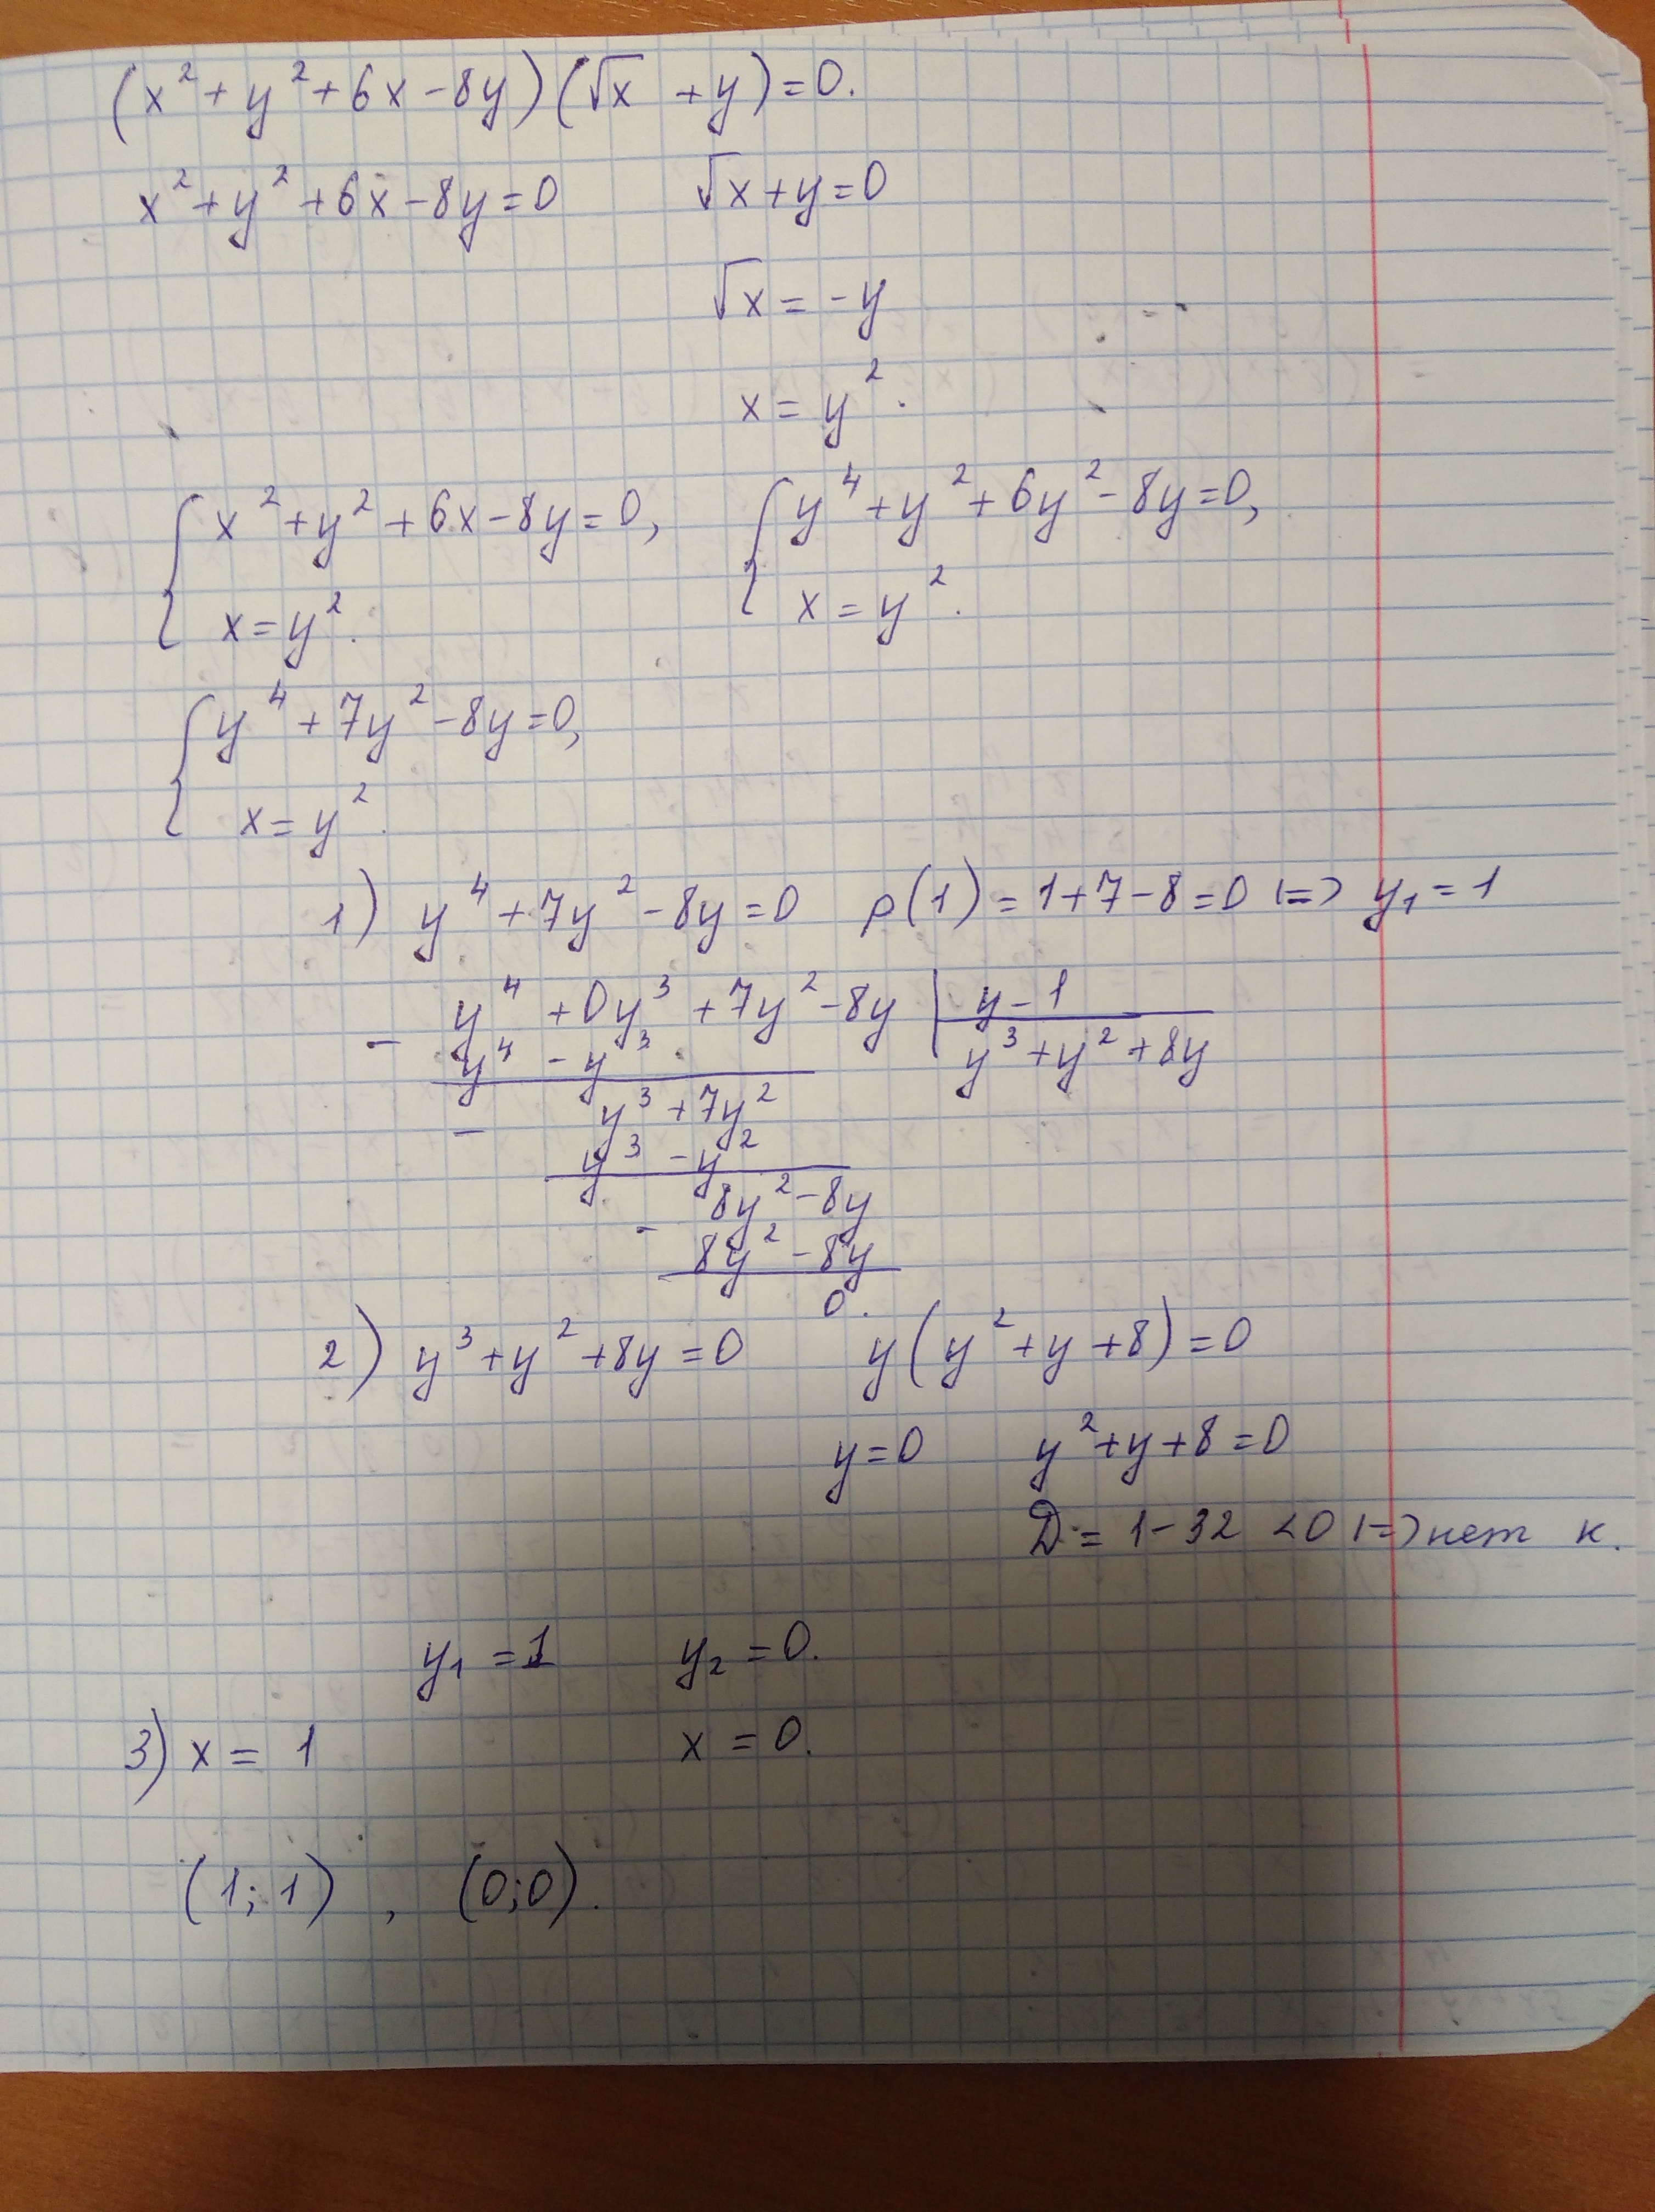 (x² + y² + 6x - 8y)(√x + y) = 0.
x² + y² + 6x - 8y = 0 √x + y = 0
√x = -y
x = y².
{ x² + y² + 6x - 8y = 0, { y⁴ + y² + 6y² - 8y = 0,
x = y². x = y².
{ y⁴ + 7y² - 8y = 0,
x = y².
1) y⁴ + 7y² - 8y = 0 p(1) = 1 + 7 - 8 = 0 |=> y₁ = 1
- y⁴ + 0y³ + 7y² - 8y | y - 1
y⁴ - y³ y³ + y² + 8y
- y³ + 7y²
y³ - y²
- 8y² - 8y
8y² - 8y
0.
2) y³ + y² + 8y = 0 y(y² + y + 8) = 0
y = 0 y² + y + 8 = 0
D = 1 - 32 < 0 |=> нет к.
y₁ = 1 y₂ = 0.
3) x = 1 x = 0.
(1; 1) , (0; 0).